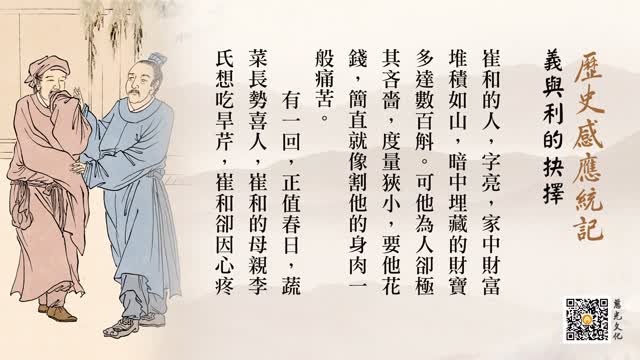 歷史感應統記
義與利的抉擇
崔和的人，字亮，家中財富
堆積如山，暗中埋藏的財寶
多達數百斛。可他為人卻極
其吝嗇，度量狹小，要他花
錢，簡直就像割他的身肉一
般痛苦。
有一回，正值春日，蔬
菜長勢喜人，崔和的母親李
氏想吃旱芹，崔和卻因心疼
慧光文化